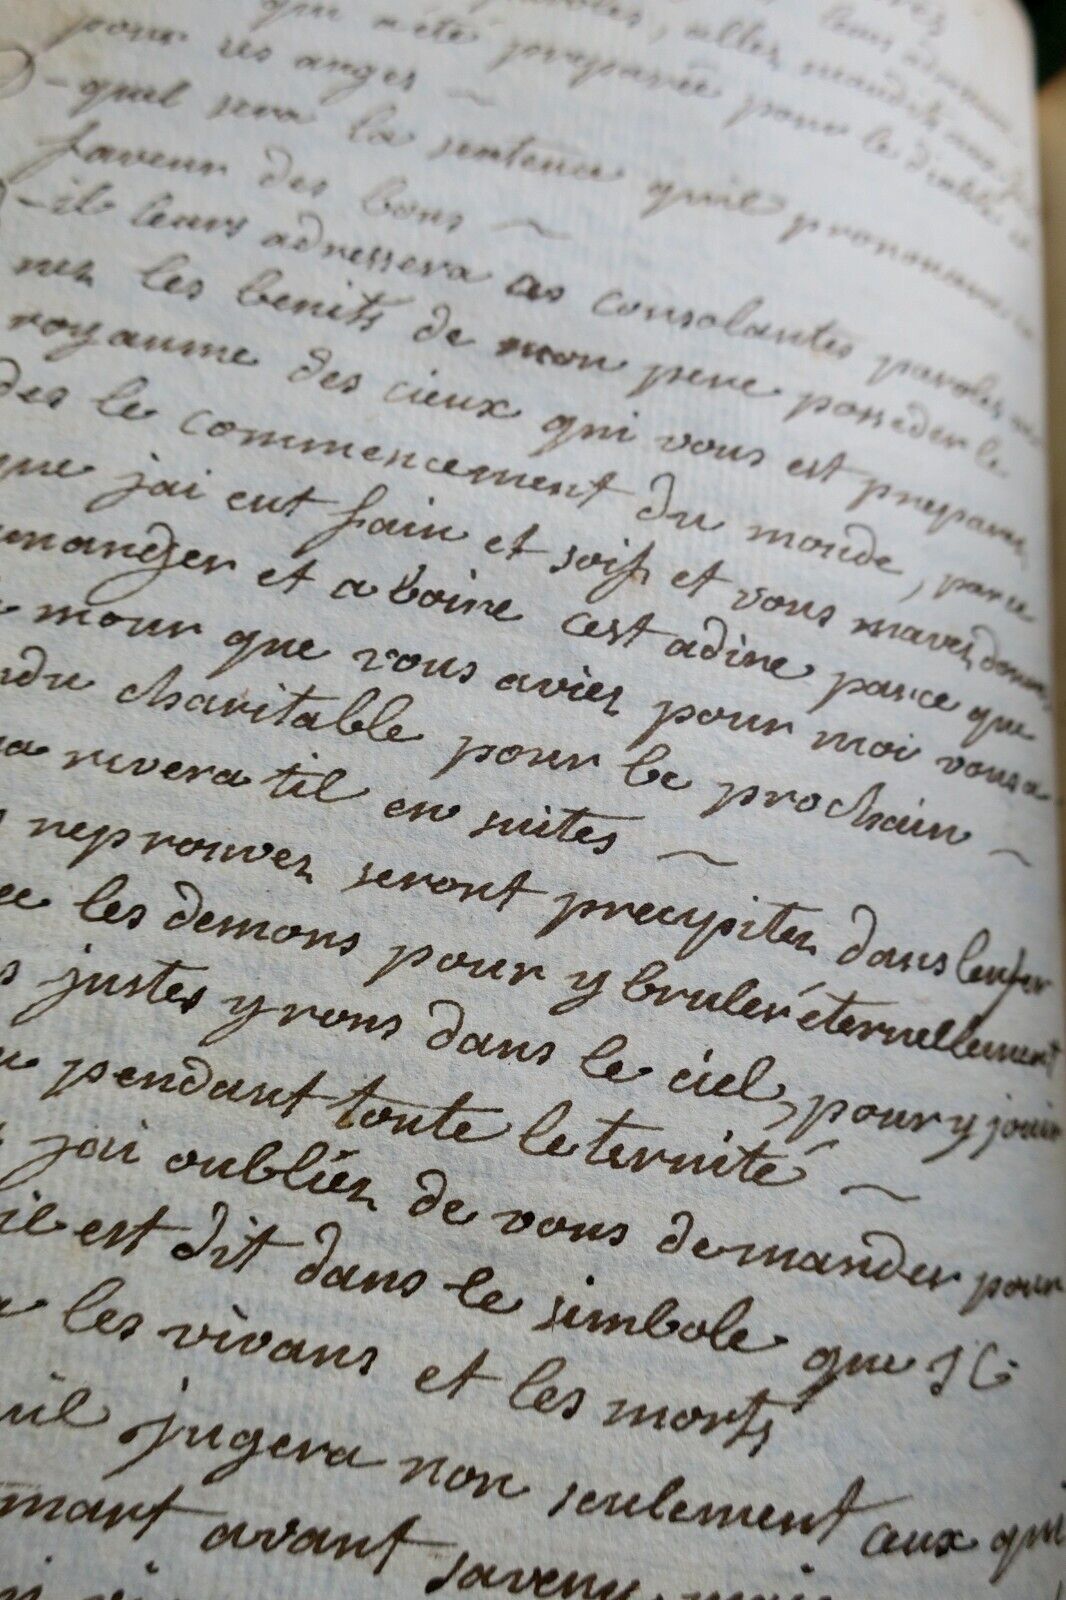 leurs adresser
paroles, allez maudits au
qui a été preparée pour le diable et
pour ses anges ~
- quel sera la sentence quil prononcera en
faveur des bons ~
- il leurs adressera ces consolantes paroles
nez les benits de mon pere posseder le
royaume des cieux qui vous est preparer,
des le commencement du monde, parce
que jai eut fain et soif et vous mavez donner
manger et a boire cest adire parce que
mour que vous aviez pour moi vous a
ndu charitable pour le prochain ~
a rivera til en suites ~
reprouvez seront precypitez dans lenfer
les demons pour y bruler éternellement
justes yrons dans le ciel, pour y jouir
pendant toute leternité ~
jai oubliez de vous demander pour
il est dit dans le simbole que J C
les vivans et les morts
uil jugera non seulement ceux qui
mort avant saveny, mais